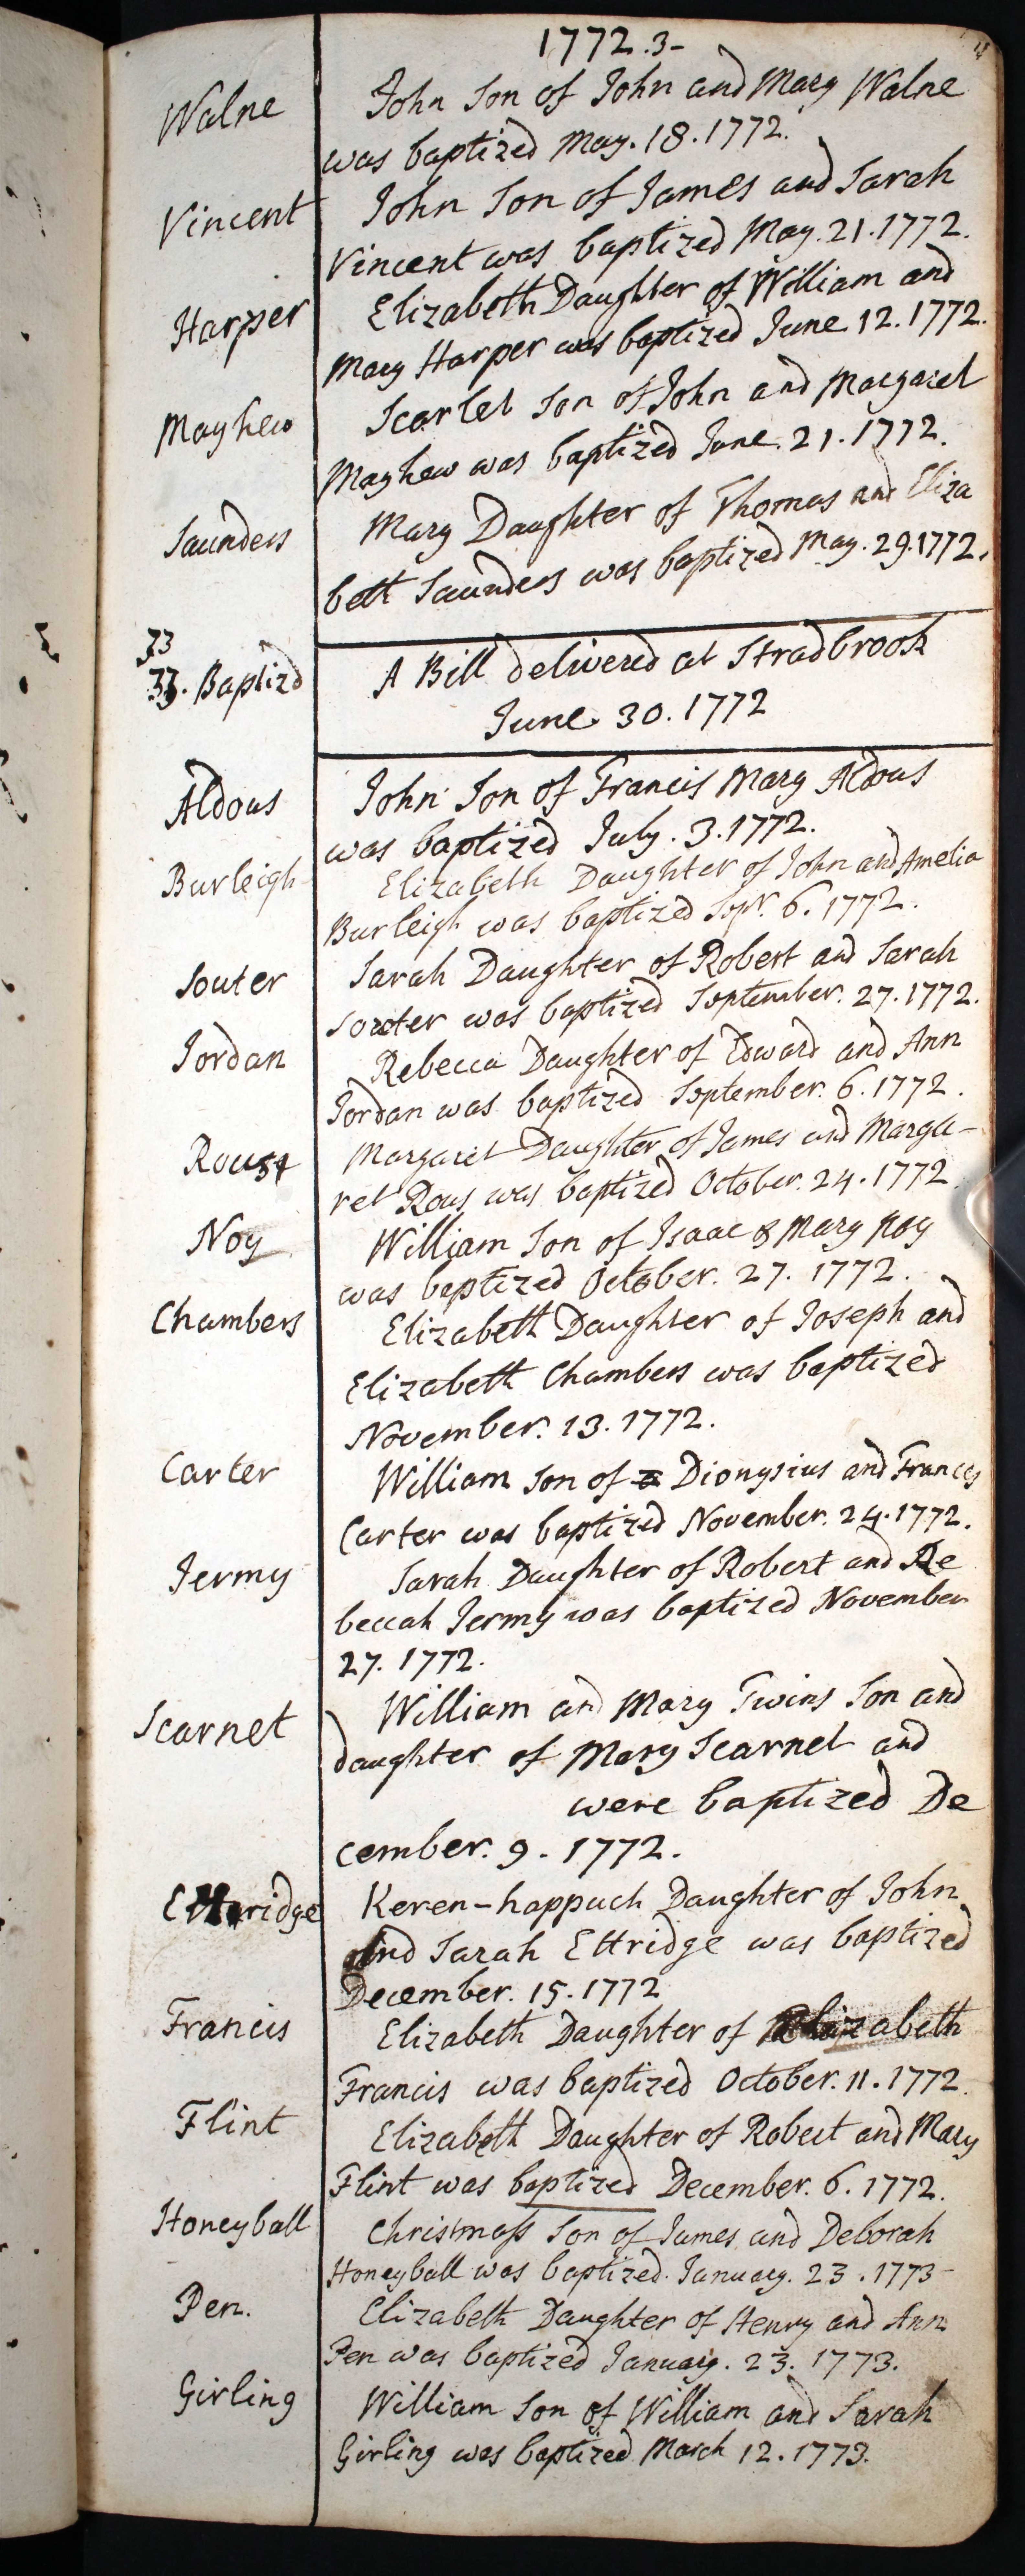 1772.3-
Walne
John Son of John and Mary Walne
was baptized May. 18. 1772.
Vincent
John Son of James and Sarah
Vincent was baptized May. 21. 1772.
Harper
Elizabeth Daughter of William and
Mary Harper was baptized June 12. 1772.
Mayhew
Scarlet Son of John and Margaret
Mayhew was baptized June. 21. 1772.
Saunders
Mary Daughter of Thomas and Eliza
beth Saunders was baptized May. 29. 1772.
33
33. Baptizd
A Bill delivered at Stradbrook
June. 30. 1772
Aldous
John Son of Francis Mary Aldous
was baptized July. 3. 1772.
Burleigh
Elizabeth Daughter of John and Amelia
Burleigh was baptized Sepr. 6. 1772.
Souter
Sarah Daughter of Robert and Sarah
Souter was baptized September. 27. 1772.
Jordan
Rebecca Daughter of Edward and Ann
Jordan was baptized September. 6. 1772.
Rouse
Margaret Daughter of James and Marga-
ret Rous was baptized October. 24. 1772
Noy
William Son of Isaac & Mary Noy
was baptized October. 27. 1772.
Chambers
Elizabeth Daughter of Joseph and
Elizabeth Chambers was baptized
November. 13. 1772.
Carter
William Son of Dionysius and Frances
Carter was baptized November. 24. 1772.
Jermy
Sarah Daughter of Robert and Re
beccah Jermy was baptized November
27. 1772.
Scarnet
William and Mary Twins Son and
daughter of Mary Scarnet and
were baptized De
cember. 9. 1772.
Ettridge
Keren-happuch Daughter of John
and Sarah Ettridge was baptized
December. 15. 1772
Francis
Elizabeth Daughter of Elizabeth
Francis was baptized October. 11. 1772.
Flint
Elizabeth Daughter of Robert and Mary
Flint was baptized December. 6. 1772.
Honeyball
Christmass Son of James and Deborah
Honeyball was baptized. January. 23. 1773-
Pen.
Elizabeth Daughter of Henry and Ann
Pen was baptized January. 23. 1773.
Girling
William Son of William and Sarah
Girling was baptized March 12. 1773.